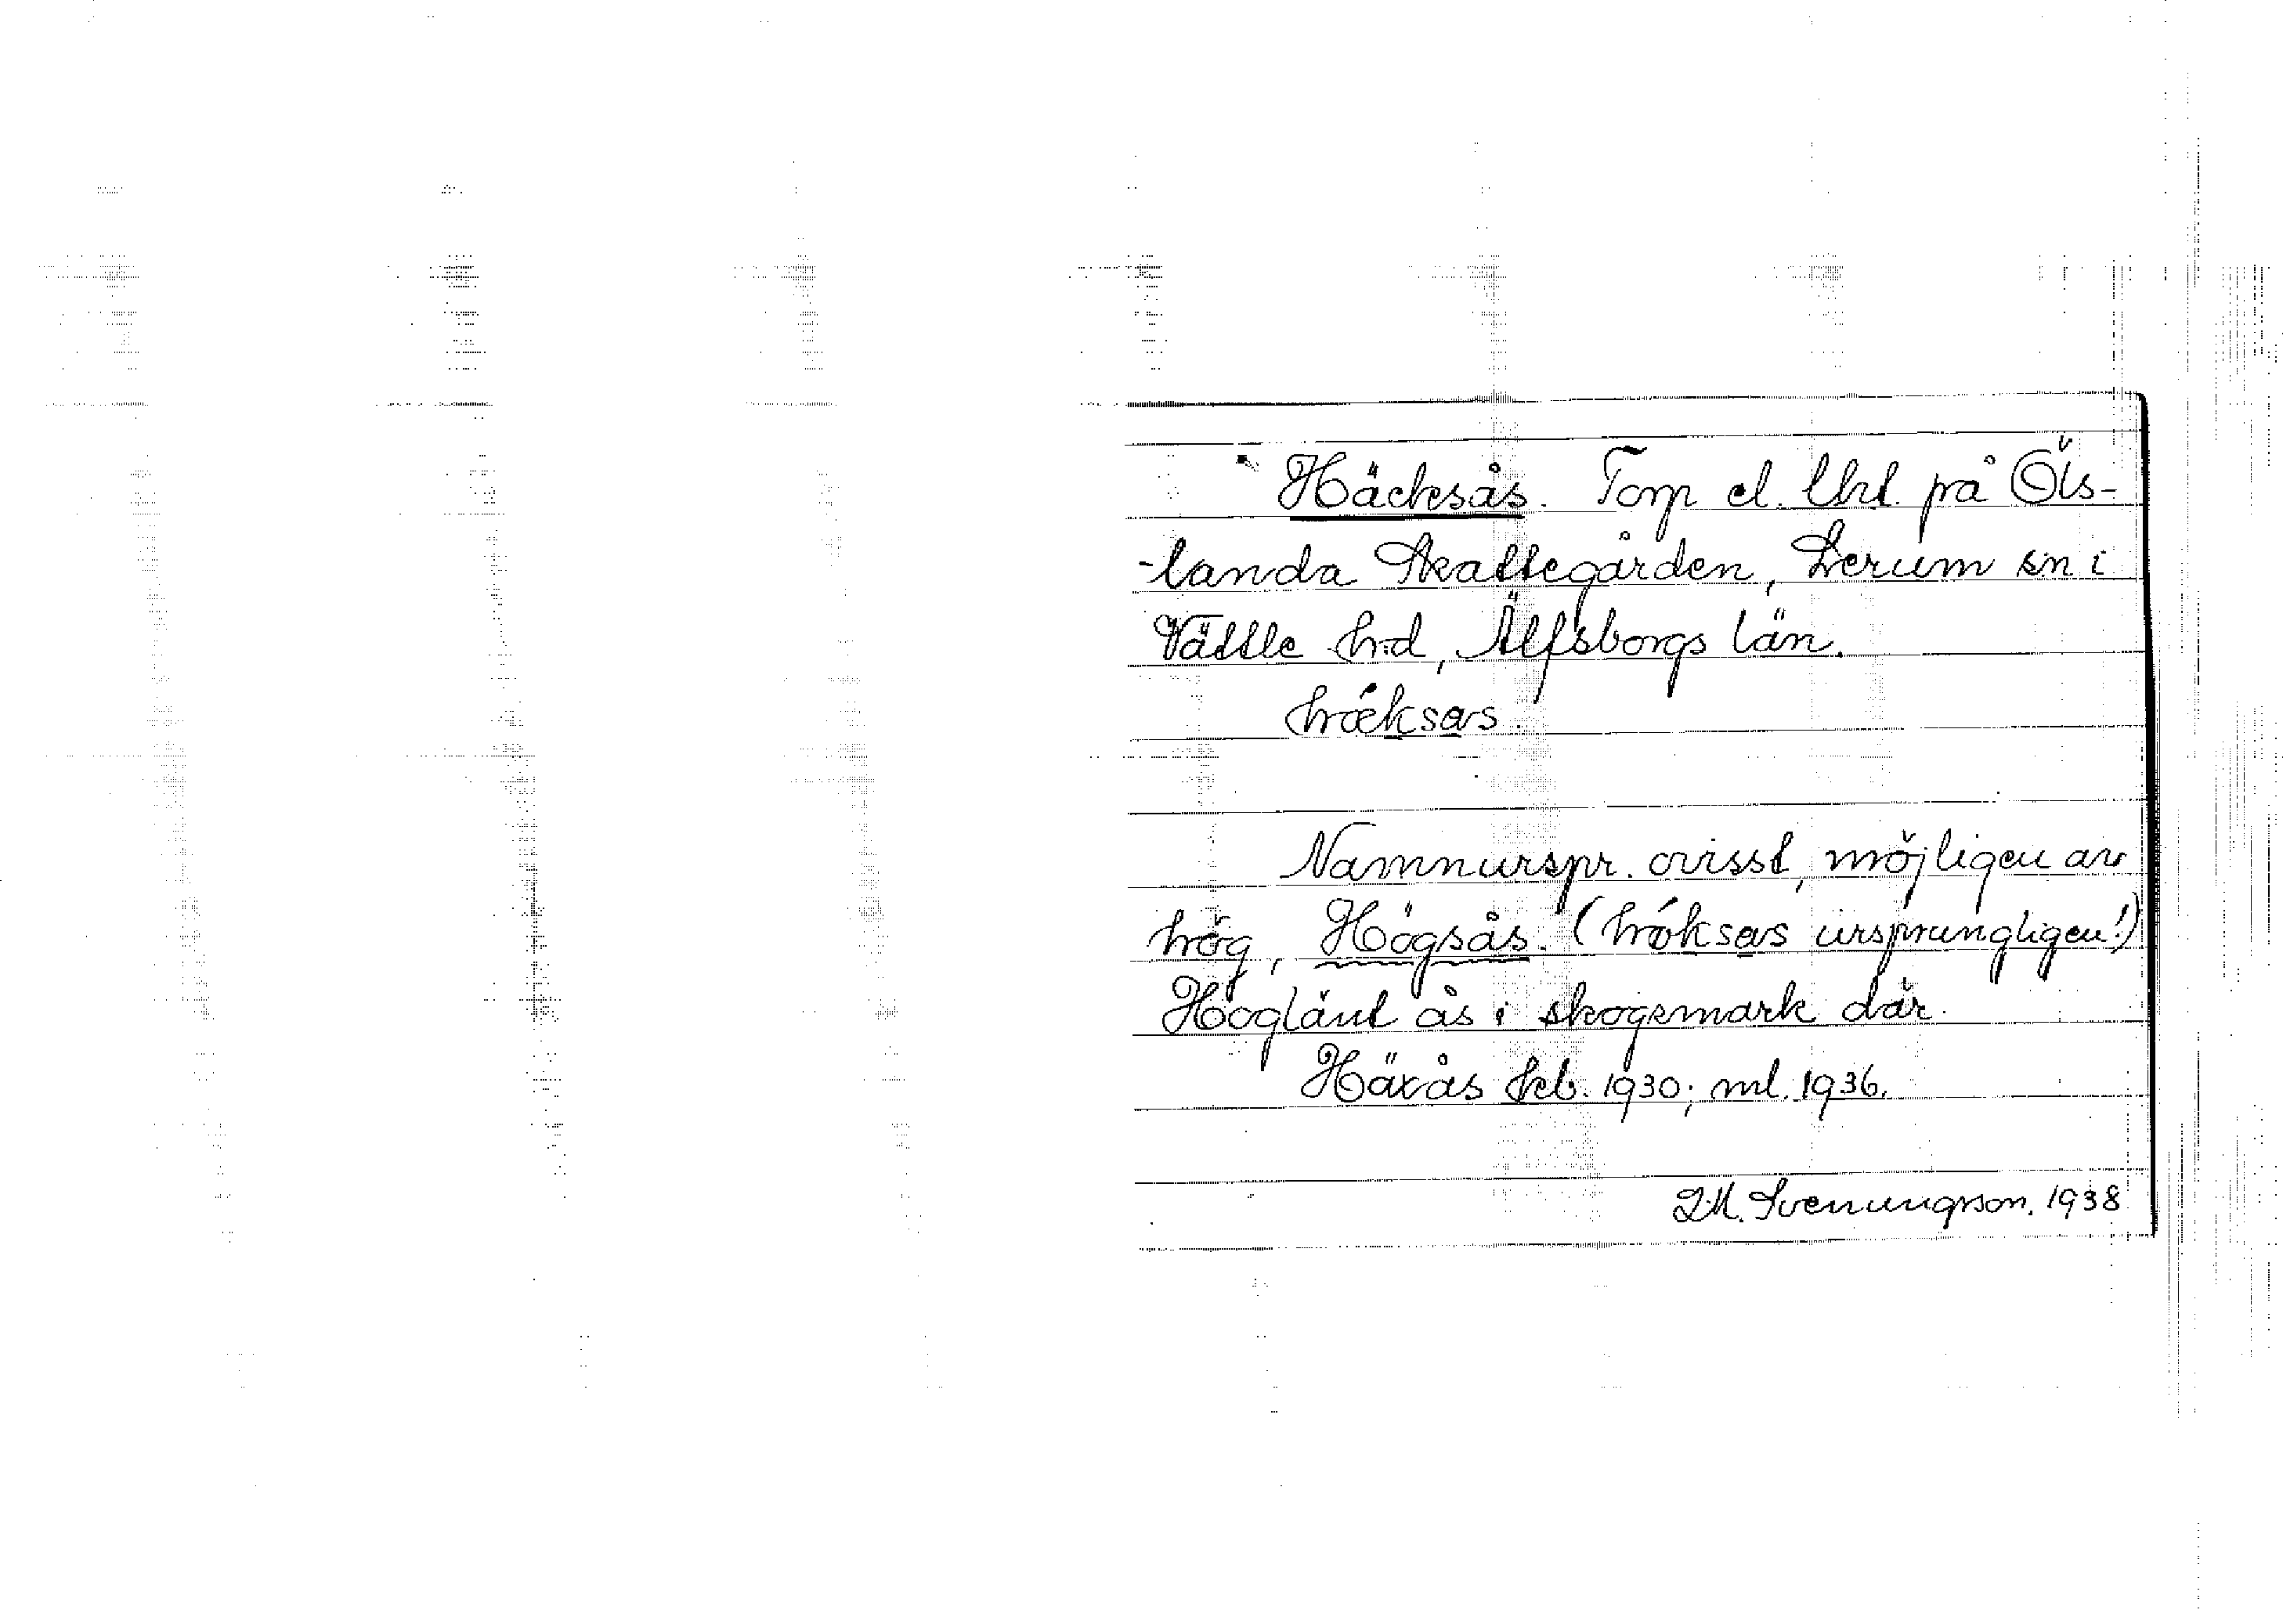 Häcksås. Torp el. lht. på Öls-
-landa Skattegården, Lerum sn i
Vättle hd, Älfsborgs län.
hǽksas.
Namnurspr. ovisst, möjligen av
hög, Högsås. (hǿksas ursprungligen!)
Höglänt ås i skogsmark där.
Häxås Jeb. 1930; ml. 1936.
Svenungson. 1938